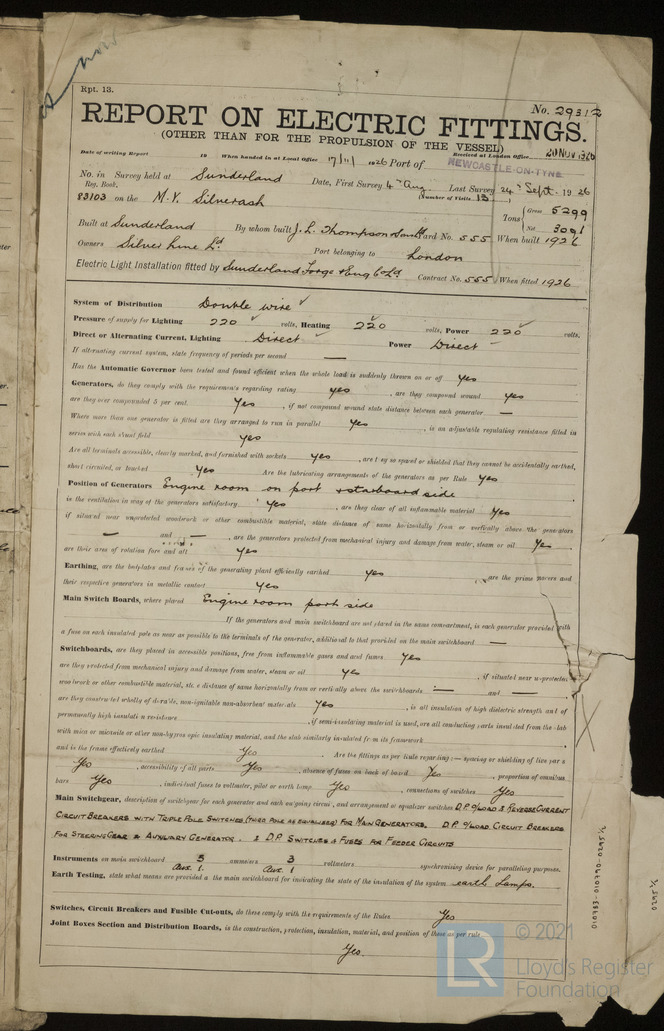 Rpt. 13.
No. 29312
REPORT ON ELECTRIC FITTINGS.
(OTHER THAN FOR THE PROPULSION OF THE VESSEL)
Date of writing Report 19 When handed in at Local Office 17/11/1926 Port of NEWCASTLE-ON-TYNE Received at London Office 20 NOV 1926
No. in Survey held at Sunderland Date, First Survey 4th Aug Last Survey 24th Sept. 1926
Reg. Book. (Number of Visits 13)
83103 on the M.V. Silverash Tons { Gross 5299 Net 3091
Built at Sunderland By whom built J. L. Thompson & Sons Ltd Yard No. 555 When built 1926
Owners Silver Line Ld Port belonging to London
Electric Light Installation fitted by Sunderland Forge & Eng Co Ld Contract No. 555 When fitted 1926
System of Distribution Double wire
Pressure of supply for Lighting 220 volts, Heating 220 volts, Power 220 volts.
Direct or Alternating Current, Lighting Direct Power Direct
If alternating current system, state frequency of periods per second —
Has the Automatic Governor been tested and found efficient when the whole load is suddenly thrown on or off yes
Generators, do they comply with the requirements regarding rating yes , are they compound wound yes
are they over compounded 5 per cent. Yes , if not compound wound state distance between each generator —
Where more than one generator is fitted are they arranged to run in parallel Yes , is an adjustable regulating resistance fitted in
series with each shunt field yes
Are all terminals accessible, clearly marked, and furnished with sockets yes , are they so spaced or shielded that they cannot be accidentally earthed,
short circuited, or touched Yes Are the lubricating arrangements of the generators as per Rule Yes
Position of Generators Engine room on port & starboard side
is the ventilation in way of the generators satisfactory Yes , are they clear of all inflammable material Yes
if situated near unprotected woodwork or other combustible material, state distance of same horizontally from or vertically above the generators
— and — , are the generators protected from mechanical injury and damage from water, steam or oil Yes
are their axes of rotation fore and aft yes
Earthing, are the bedplates and frames of the generating plant efficiently earthed yes , are the prime movers and
their respective generators in metallic contact Yes
Main Switch Boards, where placed Engine room port side
If the generators and main switchboard are not placed in the same compartment, is each generator provided with
a fuse on each insulated pole as near as possible to the terminals of the generator, additional to that provided on the main switchboard —
Switchboards, are they placed in accessible positions, free from inflammable gases and acid fumes Yes
are they protected from mechanical injury and damage from water, steam or oil Yes , if situated near unprotected
woodwork or other combustible material, state distance of same horizontally from or vertically above the switchboards — and —
are they constructed wholly of durable, non-ignitable non-absorbent materials Yes , is all insulation of high dielectric strength and of
permanently high insulation resistance , if semi-insulating material is used, are all conducting parts insulated from the slab
with mica or micanite or other non-hygroscopic insulating material, and the slab similarly insulated from its framework
and is the frame effectively earthed Yes Are the fittings as per Rule regarding:— spacing or shielding of live parts
Yes , accessibility of all parts Yes , absence of fuses on back of board Yes , proportion of omnibus
bars Yes , individual fuses to voltmeter, pilot or earth lamp Yes , connections of switches Yes
Main Switchgear, description of switchgear for each generator and each outgoing circuit, and arrangement of equaliser switches D.P. O/LOAD & REVERSE CURRENT
CIRCUIT BREAKERS WITH TRIPLE POLE SWITCHES (THIRD POLE AS EQUALISER) FOR MAIN GENERATORS. D.P. O/LOAD CIRCUIT BREAKERS
FOR STEERING GEAR & AUXILIARY GENERATOR. & D.P. SWITCHES & FUSES FOR FEEDER CIRCUITS
Instruments on main switchboard 5 ammeters 3 voltmeters synchronising device for paralleling purposes.
Aux. 1. Aux. 1
Earth Testing, state what means are provided at the main switchboard for indicating the state of the insulation of the system earth Lamps.
Switches, Circuit Breakers and Fusible Cut-outs, do these comply with the requirements of the Rules Yes
Joint Boxes Section and Distribution Boards, is the construction, protection, insulation, material, and position of these as per rule
Yes.
010783-010790-0295 1/2
0295 1/2
LR
© 2021
Lloyd's Register
Foundation